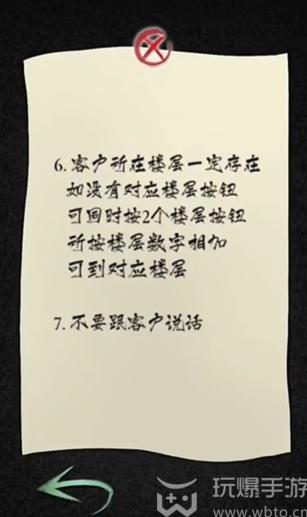 6.客户所在楼层一定存在
如没有对应楼层按钮
可同时按2个楼层按钮
所按楼层数字相加
可到对应楼层
7.不要跟客户说话
玩爆手游
www.wbto.cn